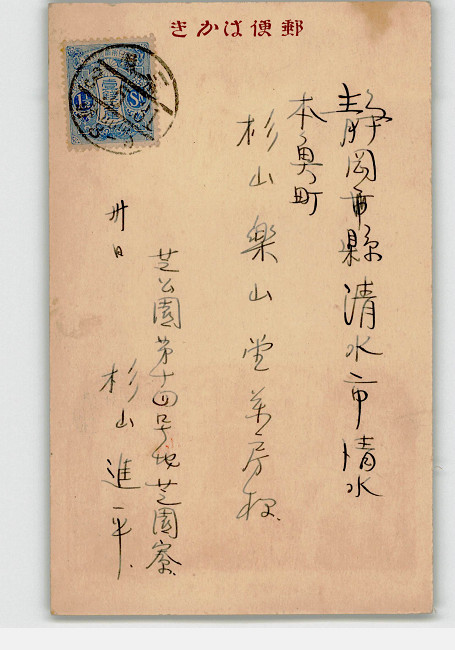 きかは便郵
静岡縣清水市清水
本魚町
杉山樂山堂薬房様
芝公園第十四号地芝園寮
杉山進平
卅日